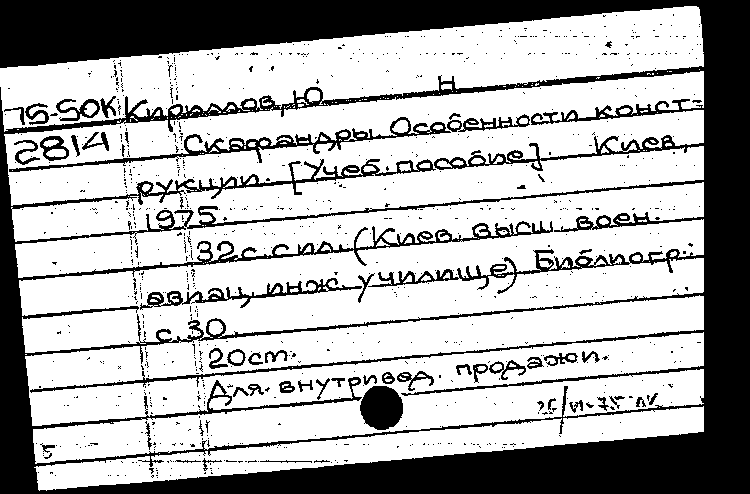 75-50К Кириллов, Ю Н
2814 Скафандры. Особенности конст=
рукции. [Учеб. пособие]. Киев,
1975.
32с. с ил. (Киев. высш. воен.
авиац. инж. училище) Библиогр.:
с. 30.
20см.
Для внутривед. продажи.
5